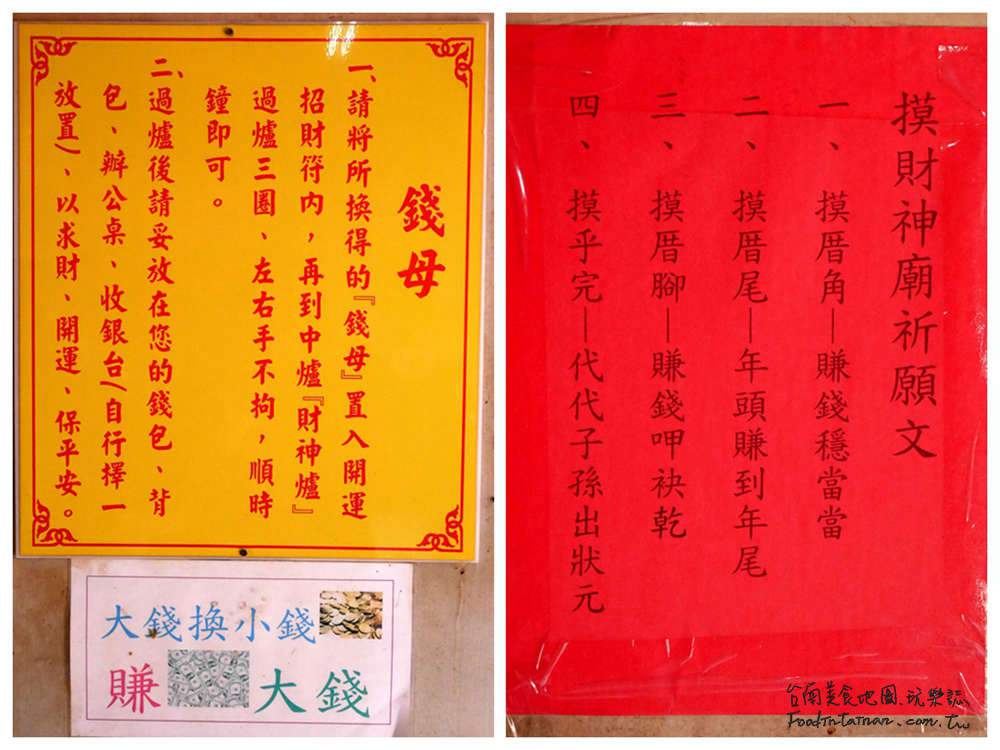 錢母
一、請將所換得的『錢母』置入開運
招財符內，再到中爐『財神爐』
過爐三圈、左右手不拘，順時
鐘即可。
二、過爐後請妥放在您的錢包、背
包、辦公桌、收銀台(自行擇一
放置)、以求財、開運、保平安。
大錢換小錢
賺大錢
摸財神廟祈願文
一、摸厝角—賺錢穩當當
二、摸厝尾—年頭賺到年尾
三、摸厝腳—賺錢呷袂乾
四、摸乎完—代代子孫出狀元
台南美食地圖.玩樂誌
Foodintainan.com.tw